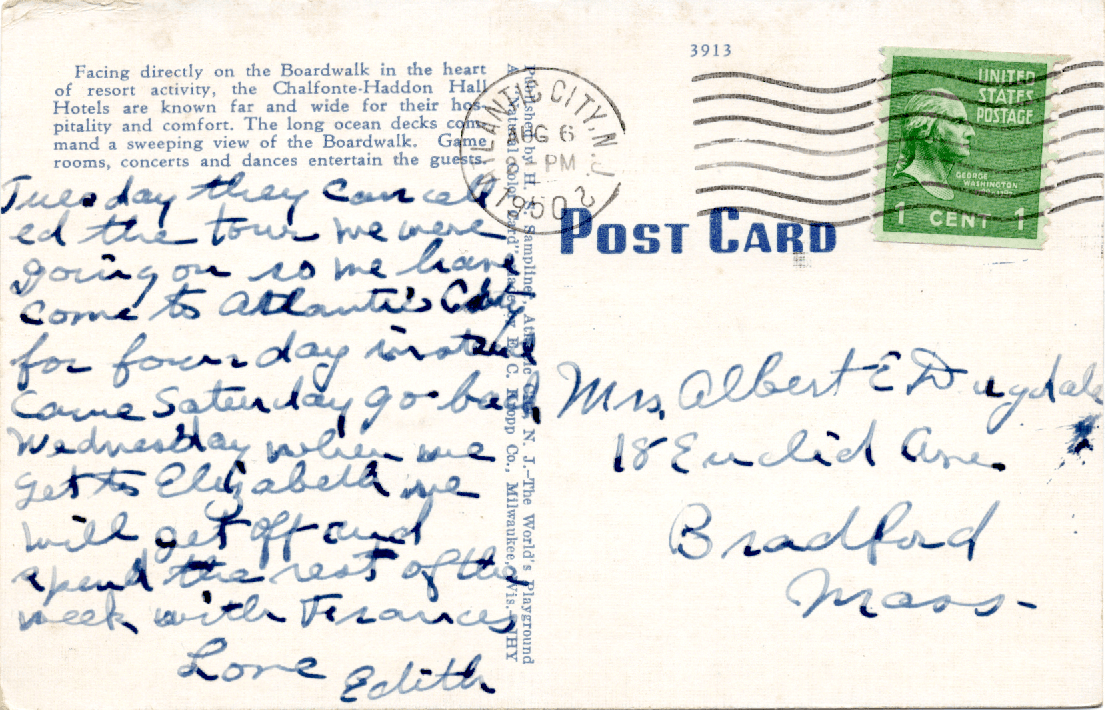 3913
Facing directly on the Boardwalk in the heart
of resort activity, the Chalfonte-Haddon Hall
Hotels are known far and wide for their hos-
pitality and comfort. The long ocean decks com-
mand a sweeping view of the Boardwalk. Game
rooms, concerts and dances entertain the guests.
Tuesday they cancell
ed the tour we were
going on so we have
come to Atlantic City
for four day instead
Came Saturday go back
Wednesday when we
get to Elizabeth we
will get off and
spend the rest of the
week with Frances
Love Edith
Published by H. Sampliner, Atlantic City, N. J.—The World's Playground
A "Natural Color Card" Made by E. C. Kropp Co., Milwaukee, Wis.
ATLANTIC CITY, N. J.
AUG 6
PM
1950
2
UNITED
STATES
POSTAGE
GEORGE
WASHINGTON
1 CENT 1
POST CARD
Mrs, Albert E Dugdale
18 Euclid Ave.
Bradford
Mass-